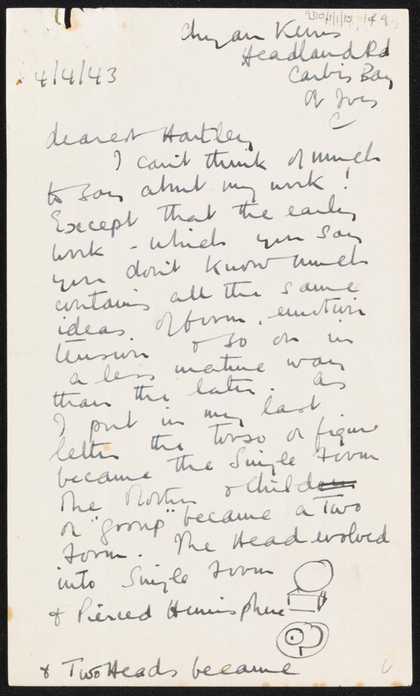 Chy an Kerris
Headland Rd
Carbis Bay
4/4/43
St Ives
C
dearest Hartley
I can't think of much
to say about my work!
Except that the early
work - which you say
you don't know much
contains all the same
ideas of form, emotion
tension & so on in
a less mature way
than the later. As
I put in my last
letter the torso or figure
became the Single Form
The Mother & Child
or "group" became a Two
Form. The Head evolved
into Single Form
& Pierced Hemisphere
& Two Heads became